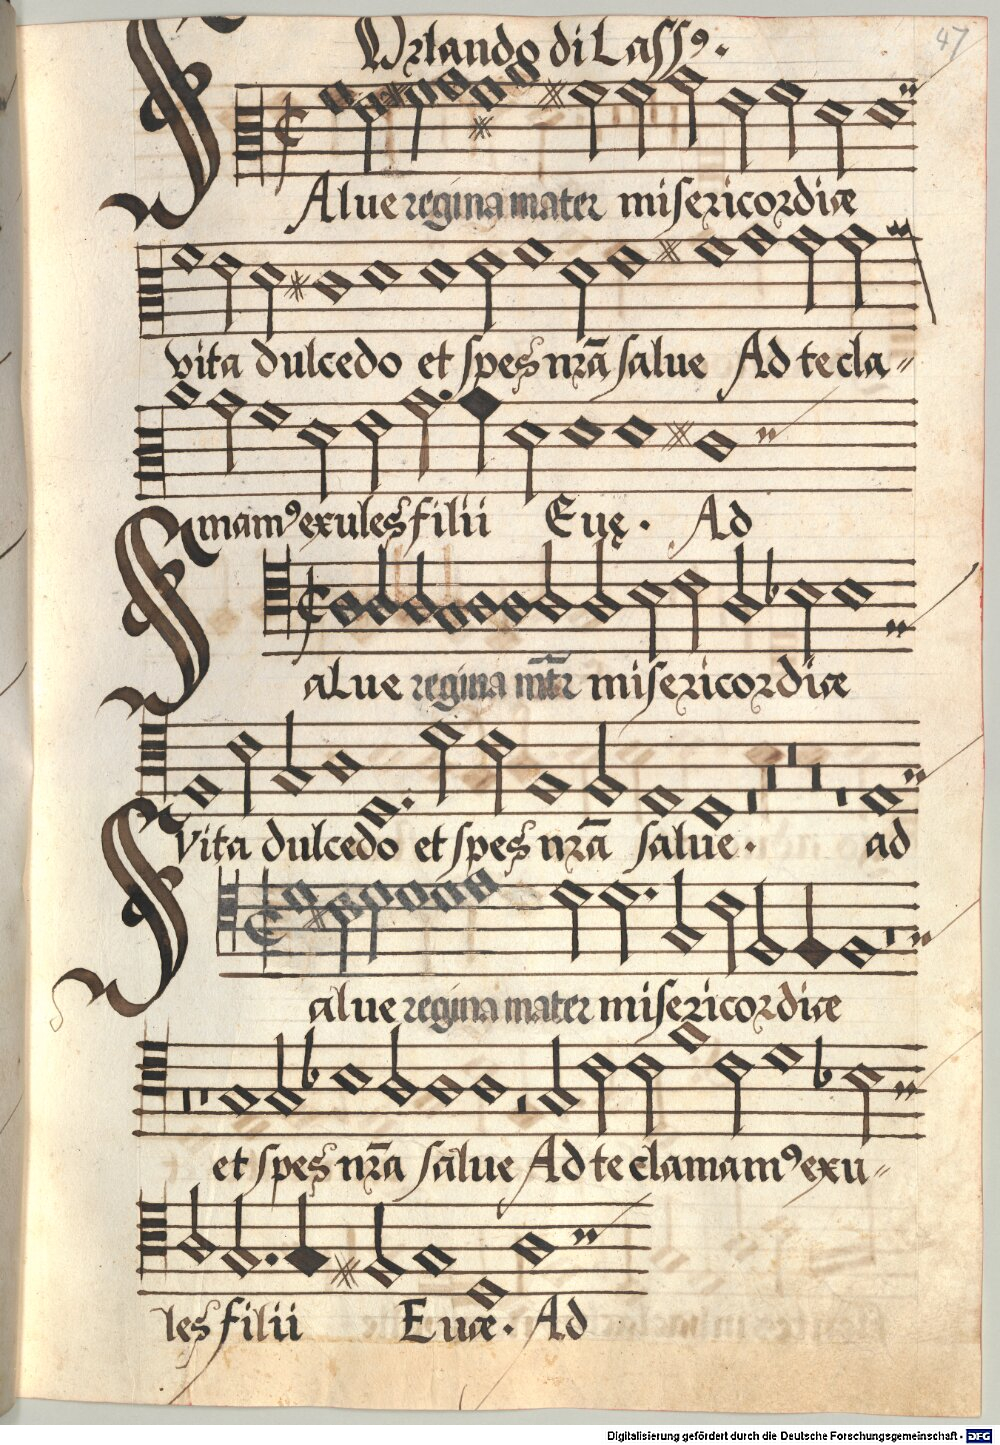 Orlando di Lassꝰ.
47
SAlue regina mater misericordiæ
vita dulcedo et spes nr̃a salue Ad te cla-
mamꝰ exules filii Euę. Ad
Salue regina mr̃ misericordiæ
vita dulcedo et spes nr̃a salue. ad
Salue regina mater misericordiæ
et spes nr̃a salue Ad te clamamꝰ exu-
les filii Euæ. Ad
Digitalisierung gefördert durch die Deutsche Forschungsgemeinschaft - DFG